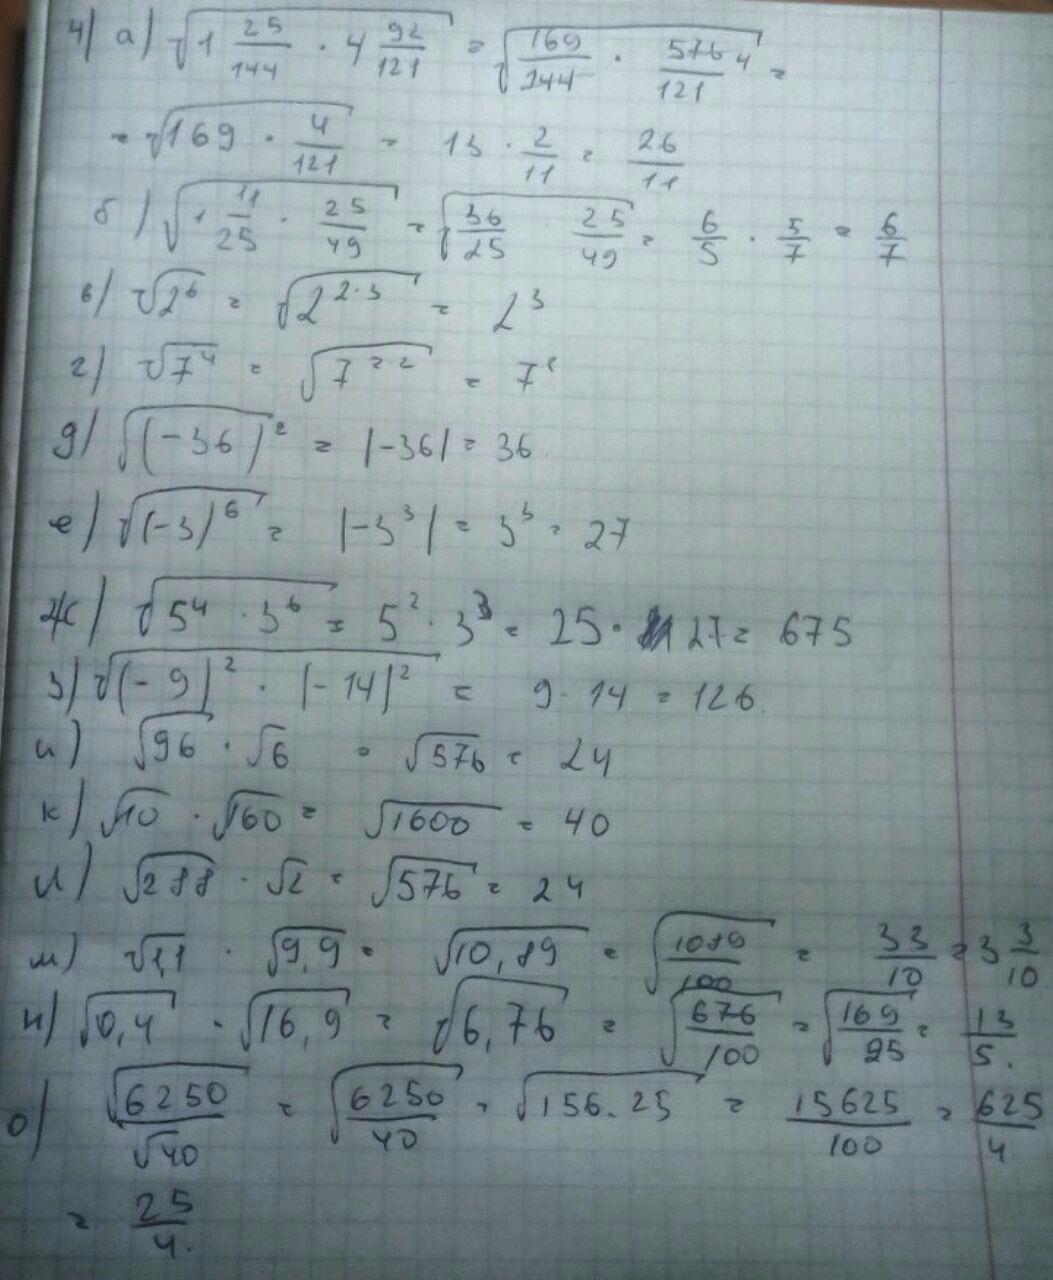 4) а) √(1 25/144 · 4 92/121) = √(169/144 · 576/121 4) =
= √(169 · 4/121) = 13 · 2/11 = 26/11
б) √(1 11/25 · 25/49) = √(36/25 · 25/49) = 6/5 · 5/7 = 6/7
в) √2⁶ = √2^(2·3) = 2³
г) √7⁴ = √7^(2·2) = 7²
д) √(-36)² = |-36| = 36
е) √(-3)⁶ = |-3³| = 3³ = 27
ж) √(5⁴ · 3⁶) = 5² · 3³ = 25 · 27 = 675
з) √((-9)² · (-14)²) = 9 · 14 = 126.
и) √96 · √6 = √576 = 24
к) √10 · √160 = √1600 = 40
л) √288 · √2 = √576 = 24
м) √1,1 · √9,9 = √10,89 = √(1089/100) = 33/10 = 3 3/10
н) √0,4 · √16,9 = √6,76 = √(676/100) = √(169/25) = 13/5.
о) √6250/√40 = √(6250/40) = √156.25 = 15625/100 = 625/4
= 25/4.